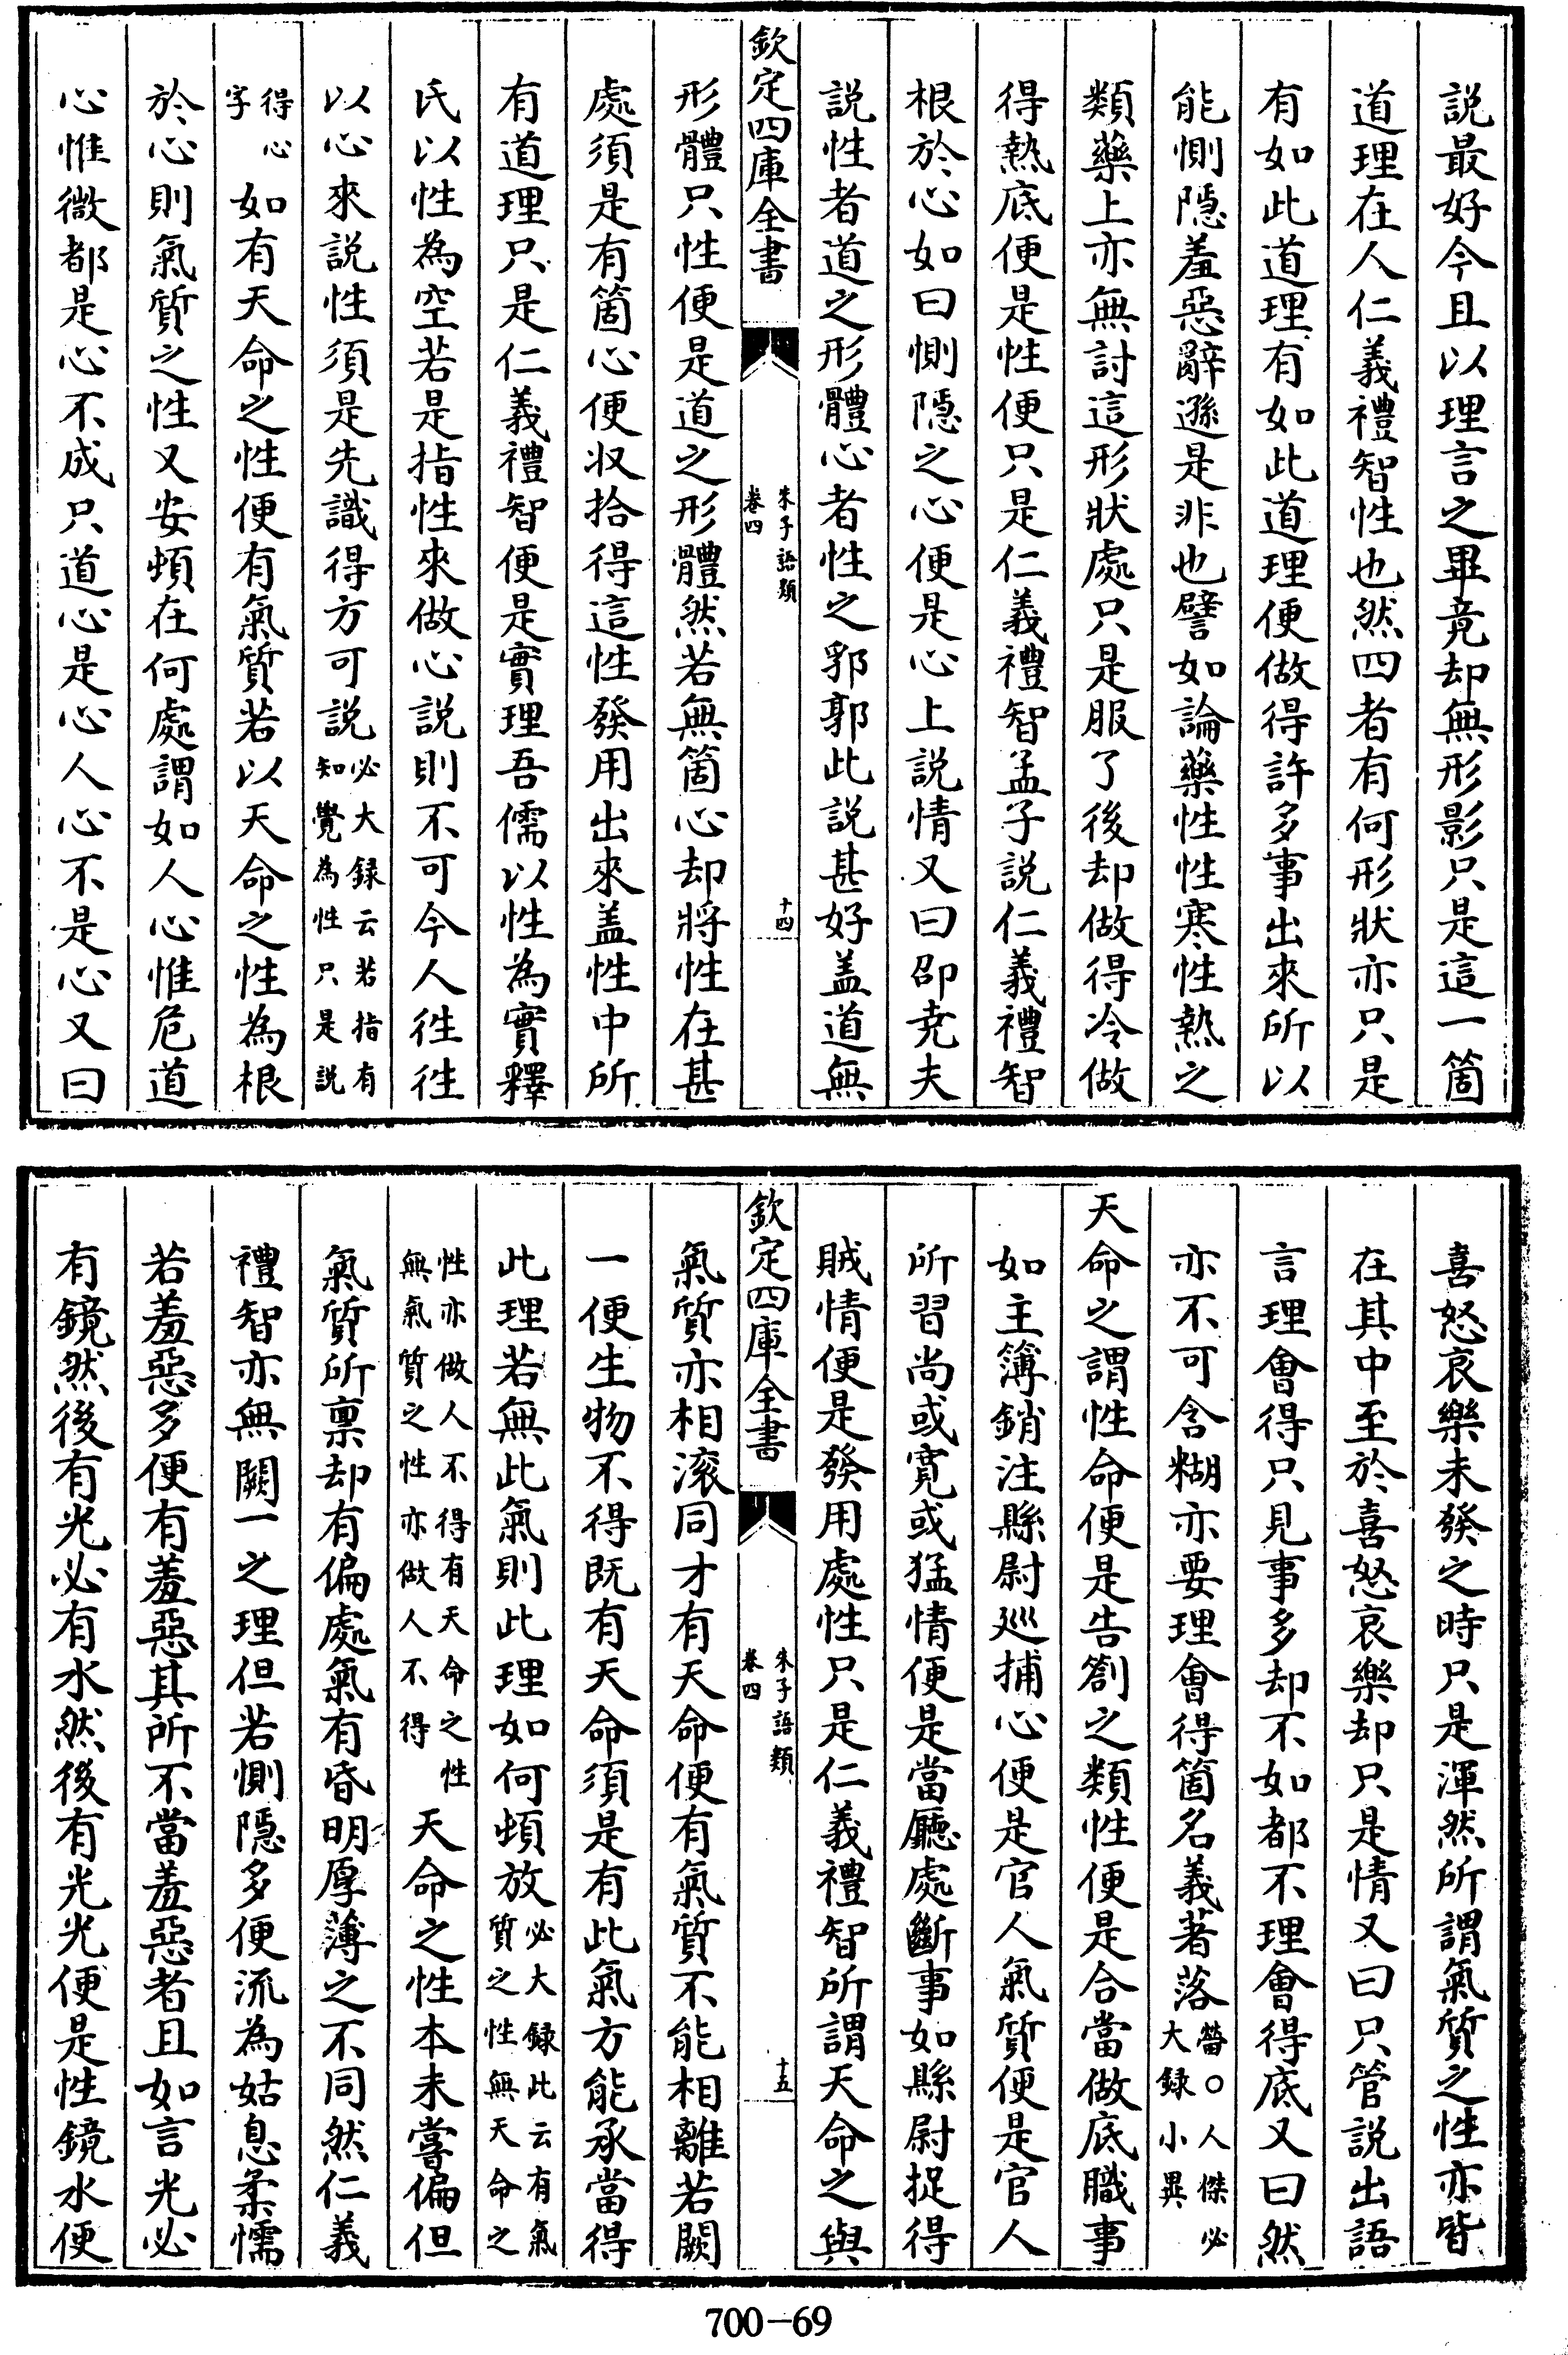 説最好今且以理言之畢竟却無形影只是這一箇
道理在人仁義禮智性也然四者有何形狀亦只是
有如此道理有如此道理便做得許多事出來所以
能惻隠羞惡辭遜是非也譬如論藥性性寒性熱之
類藥上亦無討這形狀處只是服了後却做得冷做
得熱底便是性便只是仁義禮智孟子説仁義禮智
根於心如曰惻隠之心便是心上説情又曰邵堯夫
説性者道之形體心者性之郛郭此説甚好盖道無
欽定四庫全書
朱子語類
卷四
十四
形體只性便是道之形體然若無箇心却將性在甚
處須是有箇心便收拾得這性發用出來盖性中所
有道理只是仁義禮智便是實理吾儒以性為實釋
氏以性為空若是指性來做心説則不可今人徃徃
以心來説性須是先識得方可説必大録云若指有
知覺為性只是説
得心
字如有天命之性便有氣質若以天命之性為根
於心則氣質之性又安頓在何處謂如人心惟危道
心惟微都是心不成只道心是心人心不是心又曰
喜怒哀樂未發之時只是渾然所謂氣質之性亦皆
在其中至於喜怒哀樂却只是情又曰只管説出語
言理會得只見事多却不如都不理會得底又曰然
亦不可含糊亦要理會得箇名義著落㽦○人傑必
大録小異
天命之謂性命便是告劄之類性便是合當做底職事
如主簿銷注縣尉巡捕心便是官人氣質便是官人
所習尚或寛或猛情便是當廳處斷事如縣尉捉得
賊情便是發用處性只是仁義禮智所謂天命之與
欽定四庫全書
朱子語類
卷四
十五
氣質亦相滚同才有天命便有氣質不能相離若闕
一便生物不得既有天命須是有此氣方能承當得
此理若無此氣則此理如何頓放必大録此云有氣
質之性無天命之
性亦做人不得有天命之性
無氣質之性亦做人不得天命之性本未嘗偏但
氣質所禀却有偏處氣有昏明厚薄之不同然仁義
禮智亦無闕一之理但若惻隠多便流為姑息柔懦
若羞惡多便有羞惡其所不當羞惡者且如言光必
有鏡然後有光必有水然後有光光便是性鏡水便
700-69